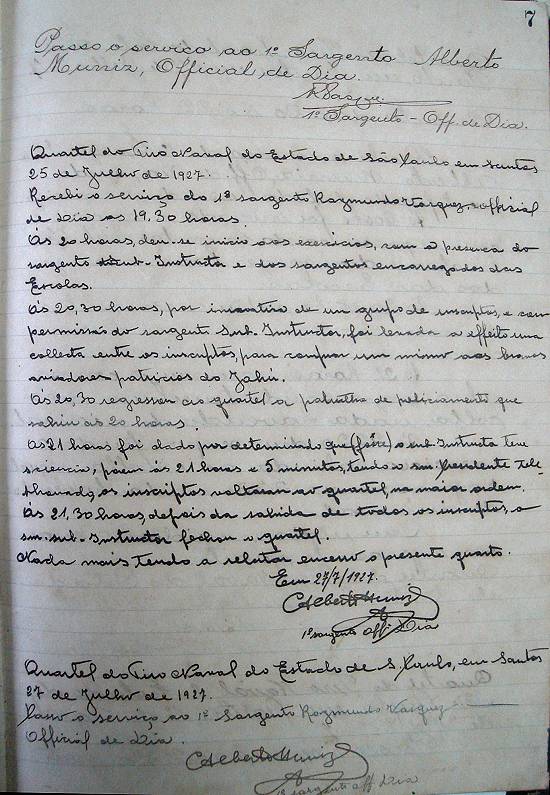 7
Passo o serviço ao 1º Sargento Alberto
Muniz, Official, de Dia.
1º Sargento - Off. de Dia.
Quartel do Tiro Naval do Estado de São Paulo em Santos
25 de Julho de 1927.
Recebi o serviço do 1º sargento Raymundo Vasques, official
de Dia as 19,30 horas.
Ás 20 horas, deu-se inicio aos exercicios, com a presença do
sargento sub-Instructor e dos sargentos encarregados das
Escolas.
Ás 20,30 horas, por iniciativa de um grupo de inscriptos, e com
permissão do sargento Sub. Instructor, foi levada a effeito uma
collecta entre os inscriptos, para comprar um mimo aos bravos
aviadores patricios do Jahú.
Ás 20,30 regressou ao quartel a patrulha de policiamento que
sahiu ás 20 horas.
Ás 21 horas foi dado por determinado que o sub. Instructor teve
sciencia, porem ás 21 horas e 5 minutos, tendo o snr. Presidente tele-
phonado, os inscriptos voltaram ao quartel, na maior ordem.
Ás 21,30 horas, depois da sahida de todos os inscriptos, o
snr. sub-Instructor fechou o quartel.
Nada mais tendo a relatar encerro o presente quarto.
Em 27/7/1927.
Alberto Muniz
1º sargento off. Dia
Quartel do Tiro Naval do Estado de S. Paulo, em Santos
27 de Julho de 1927.
Passo o serviço ao 1º Sargento Raymundo Vasques
Official de Dia.
Alberto Muniz
1º sargento off. Dia